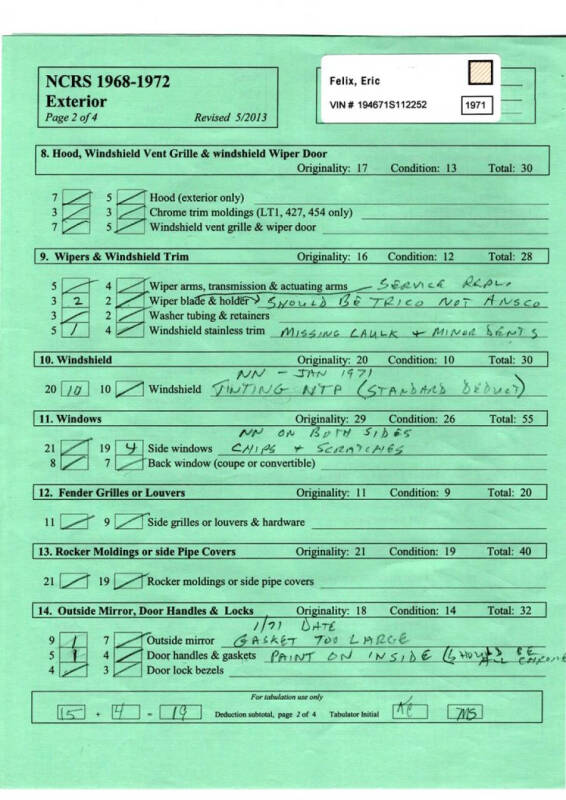 NCRS 1968-1972
Exterior
Page 2 of 4 Revised 5/2013
Felix, Eric
VIN # 194671S112252 1971
8. Hood, Windshield Vent Grille & windshield Wiper Door
Originality: 17 Condition: 13 Total: 30
7 5 Hood (exterior only)
3 3 Chrome trim moldings (LT1, 427, 454 only)
7 5 Windshield vent grille & wiper door
9. Wipers & Windshield Trim Originality: 16 Condition: 12 Total: 28
5 4 Wiper arms, transmission & actuating arms SERVICE REPL.
3 2 2 Wiper blade & holder SHOULD BE TRICO NOT ANSCO
3 2 Washer tubing & retainers
5 1 4 Windshield stainless trim MISSING CAULK & MINOR DENTS
10. Windshield Originality: 20 Condition: 10 Total: 30
NN - JAN 1971
20 10 10 Windshield TINTING NTP (STANDARD DEDUCT)
11. Windows Originality: 29 Condition: 26 Total: 55
NN ON BOTH SIDES
21 19 4 Side windows CHIPS & SCRATCHES
8 7 Back window (coupe or convertible)
12. Fender Grilles or Louvers Originality: 11 Condition: 9 Total: 20
11 9 Side grilles or louvers & hardware
13. Rocker Moldings or side Pipe Covers Originality: 21 Condition: 19 Total: 40
21 19 Rocker moldings or side pipe covers
14. Outside Mirror, Door Handles & Locks Originality: 18 Condition: 14 Total: 32
1/71 DATE
9 1 7 Outside mirror GASKET TOO LARGE
5 1 4 Door handles & gaskets PAINT ON INSIDE (SHOULD BE ALL CHROME
4 3 Door lock bezels
For tabulation use only
15 + 4 = 19 Deduction subtotal, page 2 of 4 Tabulator Initial KC MS